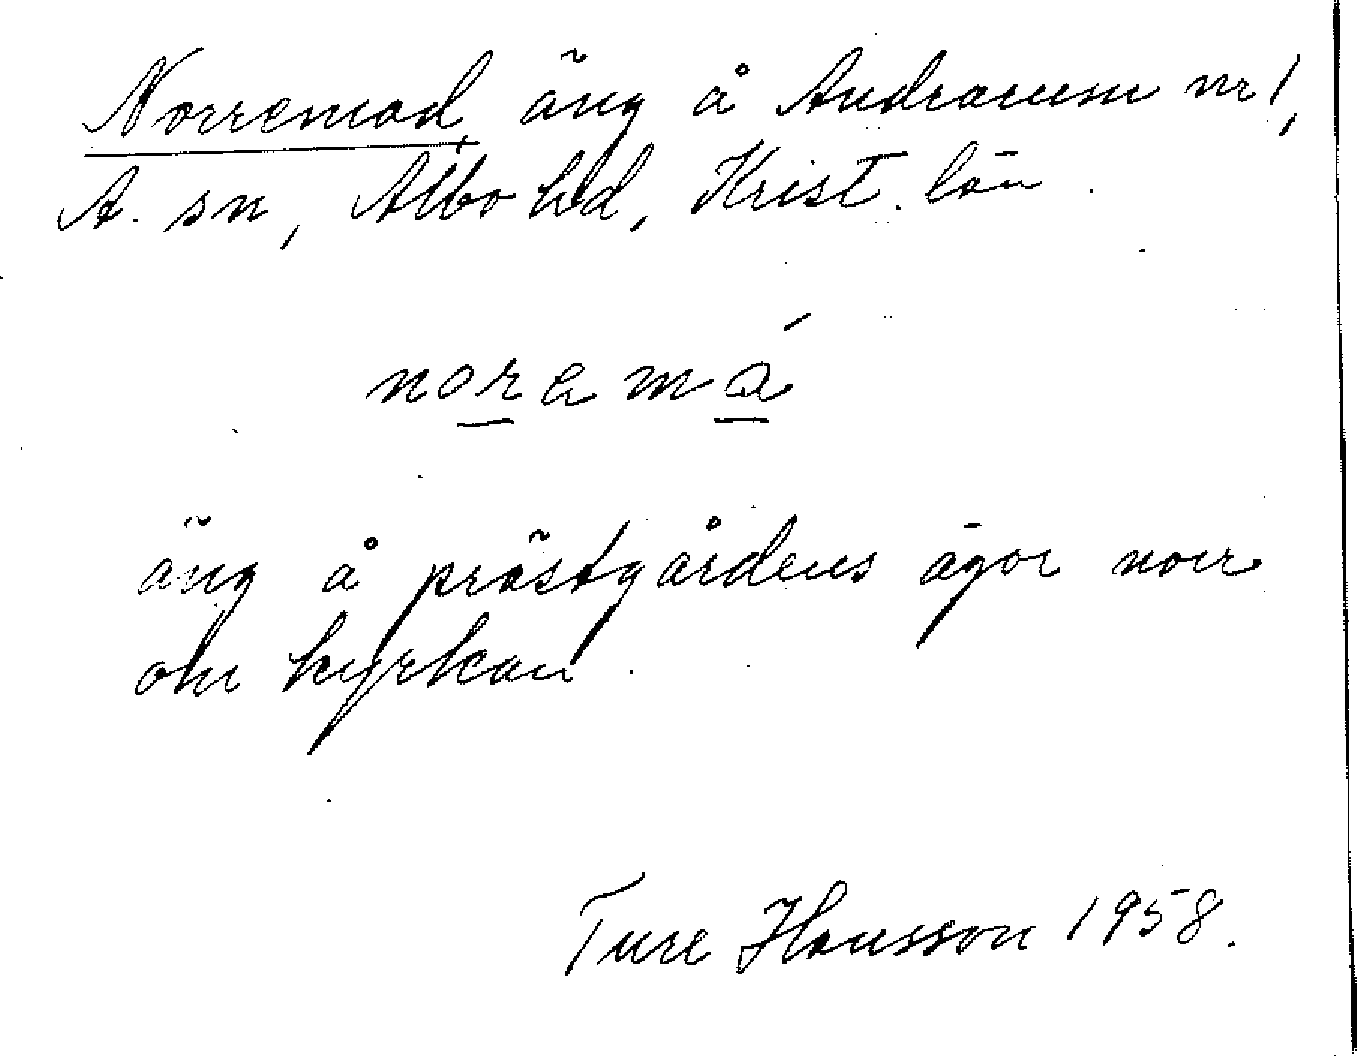 Norremad, äng å Andrarum nr 1,
A. sn, Albo hd, Krist. län.
noremá
äng å prästgårdens ägor norr
om kyrkan.
Ture Hansson 1958.